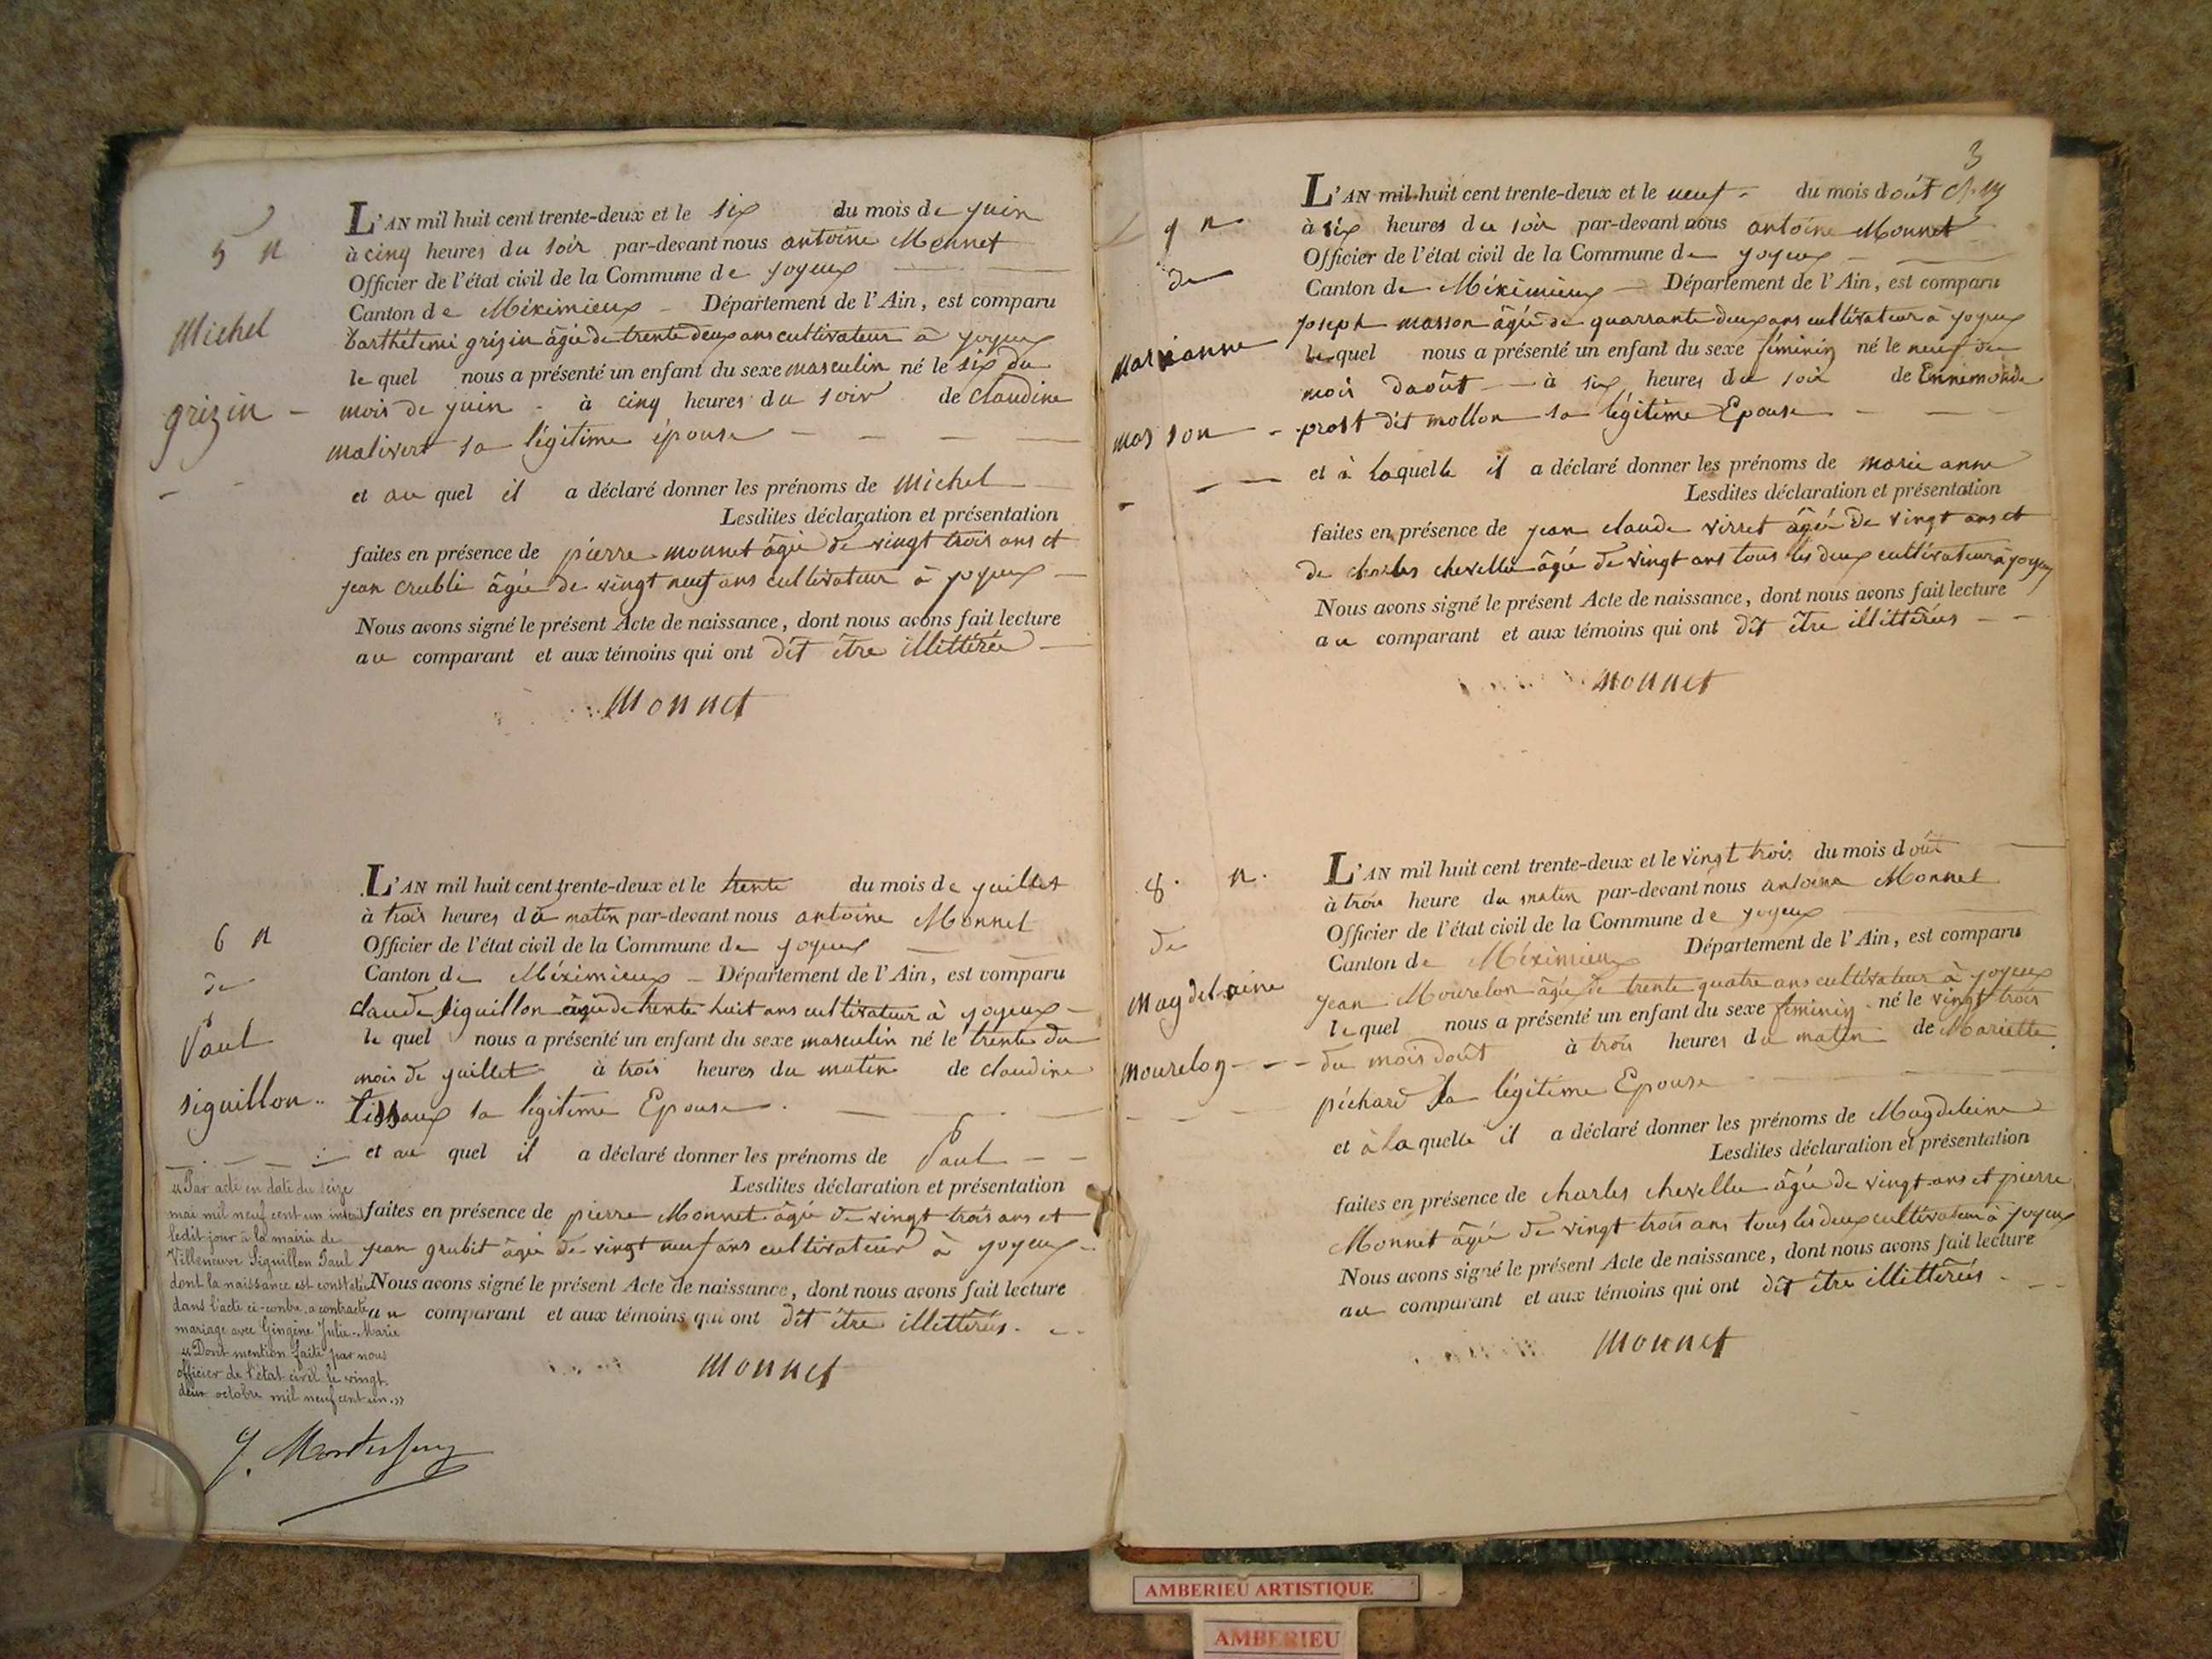 5 n
Michel
grizin -
L'AN mil huit cent trente-deux et le six du mois de juin
à cinq heures du soir par-devant nous antoine Monnet
Officier de l'état civil de la Commune de joyeux
Canton de Méximieux - Département de l'Ain, est comparu
barthélemi grizin âgé de trente deux ans cultivateur à joyeux
le quel nous a présenté un enfant du sexe masculin né le six du
mois de juin - à cinq heures du soir de claudine
malivert sa légitime épouse
et au quel il a déclaré donner les prénoms de Michel
Lesdites déclaration et présentation
faites en présence de pierre monnet âgé de vingt trois ans et
jean crubli âgé de vingt neuf ans cultivateur à joyeux
Nous avons signé le présent Acte de naissance, dont nous avons fait lecture
au comparant et aux témoins qui ont dit être illittérés
Monnet
6 n
de
Paul
siguillon
L'AN mil huit cent trente-deux et le trente du mois de juillet
à trois heures du matin par-devant nous antoine Monnet
Officier de l'état civil de la Commune de joyeux
Canton de Méximieux - Département de l'Ain, est comparu
claude siguillon âgé de trente huit ans cultivateur à joyeux
le quel nous a présenté un enfant du sexe masculin né le trente du
mois de juillet à trois heures du matin de claudine
tissaux sa légitime Epouse
et au quel il a déclaré donner les prénoms de Paul
Lesdites déclaration et présentation
faites en présence de pierre Monnet âgé de vingt trois ans et
jean grubit âgé de vingt neuf ans cultivateur à joyeux
Nous avons signé le présent Acte de naissance, dont nous avons fait lecture
au comparant et aux témoins qui ont dit être illittérés
Monnet
« Par acte en date du seize
mai mil neuf cent un inscrit
ledit jour à la mairie de
Villeneuve Siguillon Paul
dont la naissance est constatée
dans l'acte ci-contre a contracté
mariage avec Gingène Julie-Marie
« Dont mention faite par nous
officier de l'état civil le vingt
deux octobre mil neuf cent un. »
3
7 n
de
Marianne
masson
L'AN mil huit cent trente-deux et le neuf du mois d'oût
à six heures du soir par-devant nous antoine Monnet
Officier de l'état civil de la Commune de joyeux
Canton de Méximieux - Département de l'Ain, est comparu
joseph masson âgé de quarrante deux ans cultivateur à joyeux
le quel nous a présenté un enfant du sexe féminin né le neuf du
mois daoût - à six heures du soir de Ennemonde
prost dit mollon sa légitime Epouse
et à laquelle il a déclaré donner les prénoms de marie anne
Lesdites déclaration et présentation
faites en présence de jean claude virret âgé de vingt ans et
de charles chevellu âgé de vingt ans tous les deux cultivateur à joyeux
Nous avons signé le présent Acte de naissance, dont nous avons fait lecture
au comparant et aux témoins qui ont dit être illittérés
Monnet
8. n.
de
Magdelaine
mourelon
L'AN mil huit cent trente-deux et le vingt trois du mois d'oût
à trois heure du matin par-devant nous antoine Monnet
Officier de l'état civil de la Commune de joyeux
Canton de Méximieux Département de l'Ain, est comparu
jean Mourelon âgé de trente quatre ans cultivateur à joyeux
le quel nous a présenté un enfant du sexe féminin né le vingt trois
du mois daoût à trois heures du matin de Mariette
péchard sa légitime Epouse
et à la quelle il a déclaré donner les prénoms de Magdeleine
Lesdites déclaration et présentation
faites en présence de charles chevellu âgé de vingt ans et pierre
Monnet âgé de vingt trois ans tous les deux cultivateur à joyeux
Nous avons signé le présent Acte de naissance, dont nous avons fait lecture
au comparant et aux témoins qui ont dit être illittérés
Monnet
AMBERIEU ARTISTIQUE
AMBERIEU